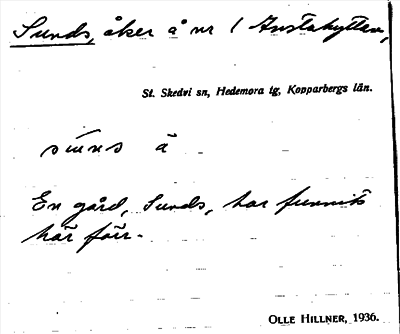 Sunds, åker å nr 1 Anstahyttan,
St. Skedvi sn, Hedemora tg, Kopparbergs län.
sùns å
En gård, Sunds, har funnits
här förr.
OLLE HILLNER, 1936.